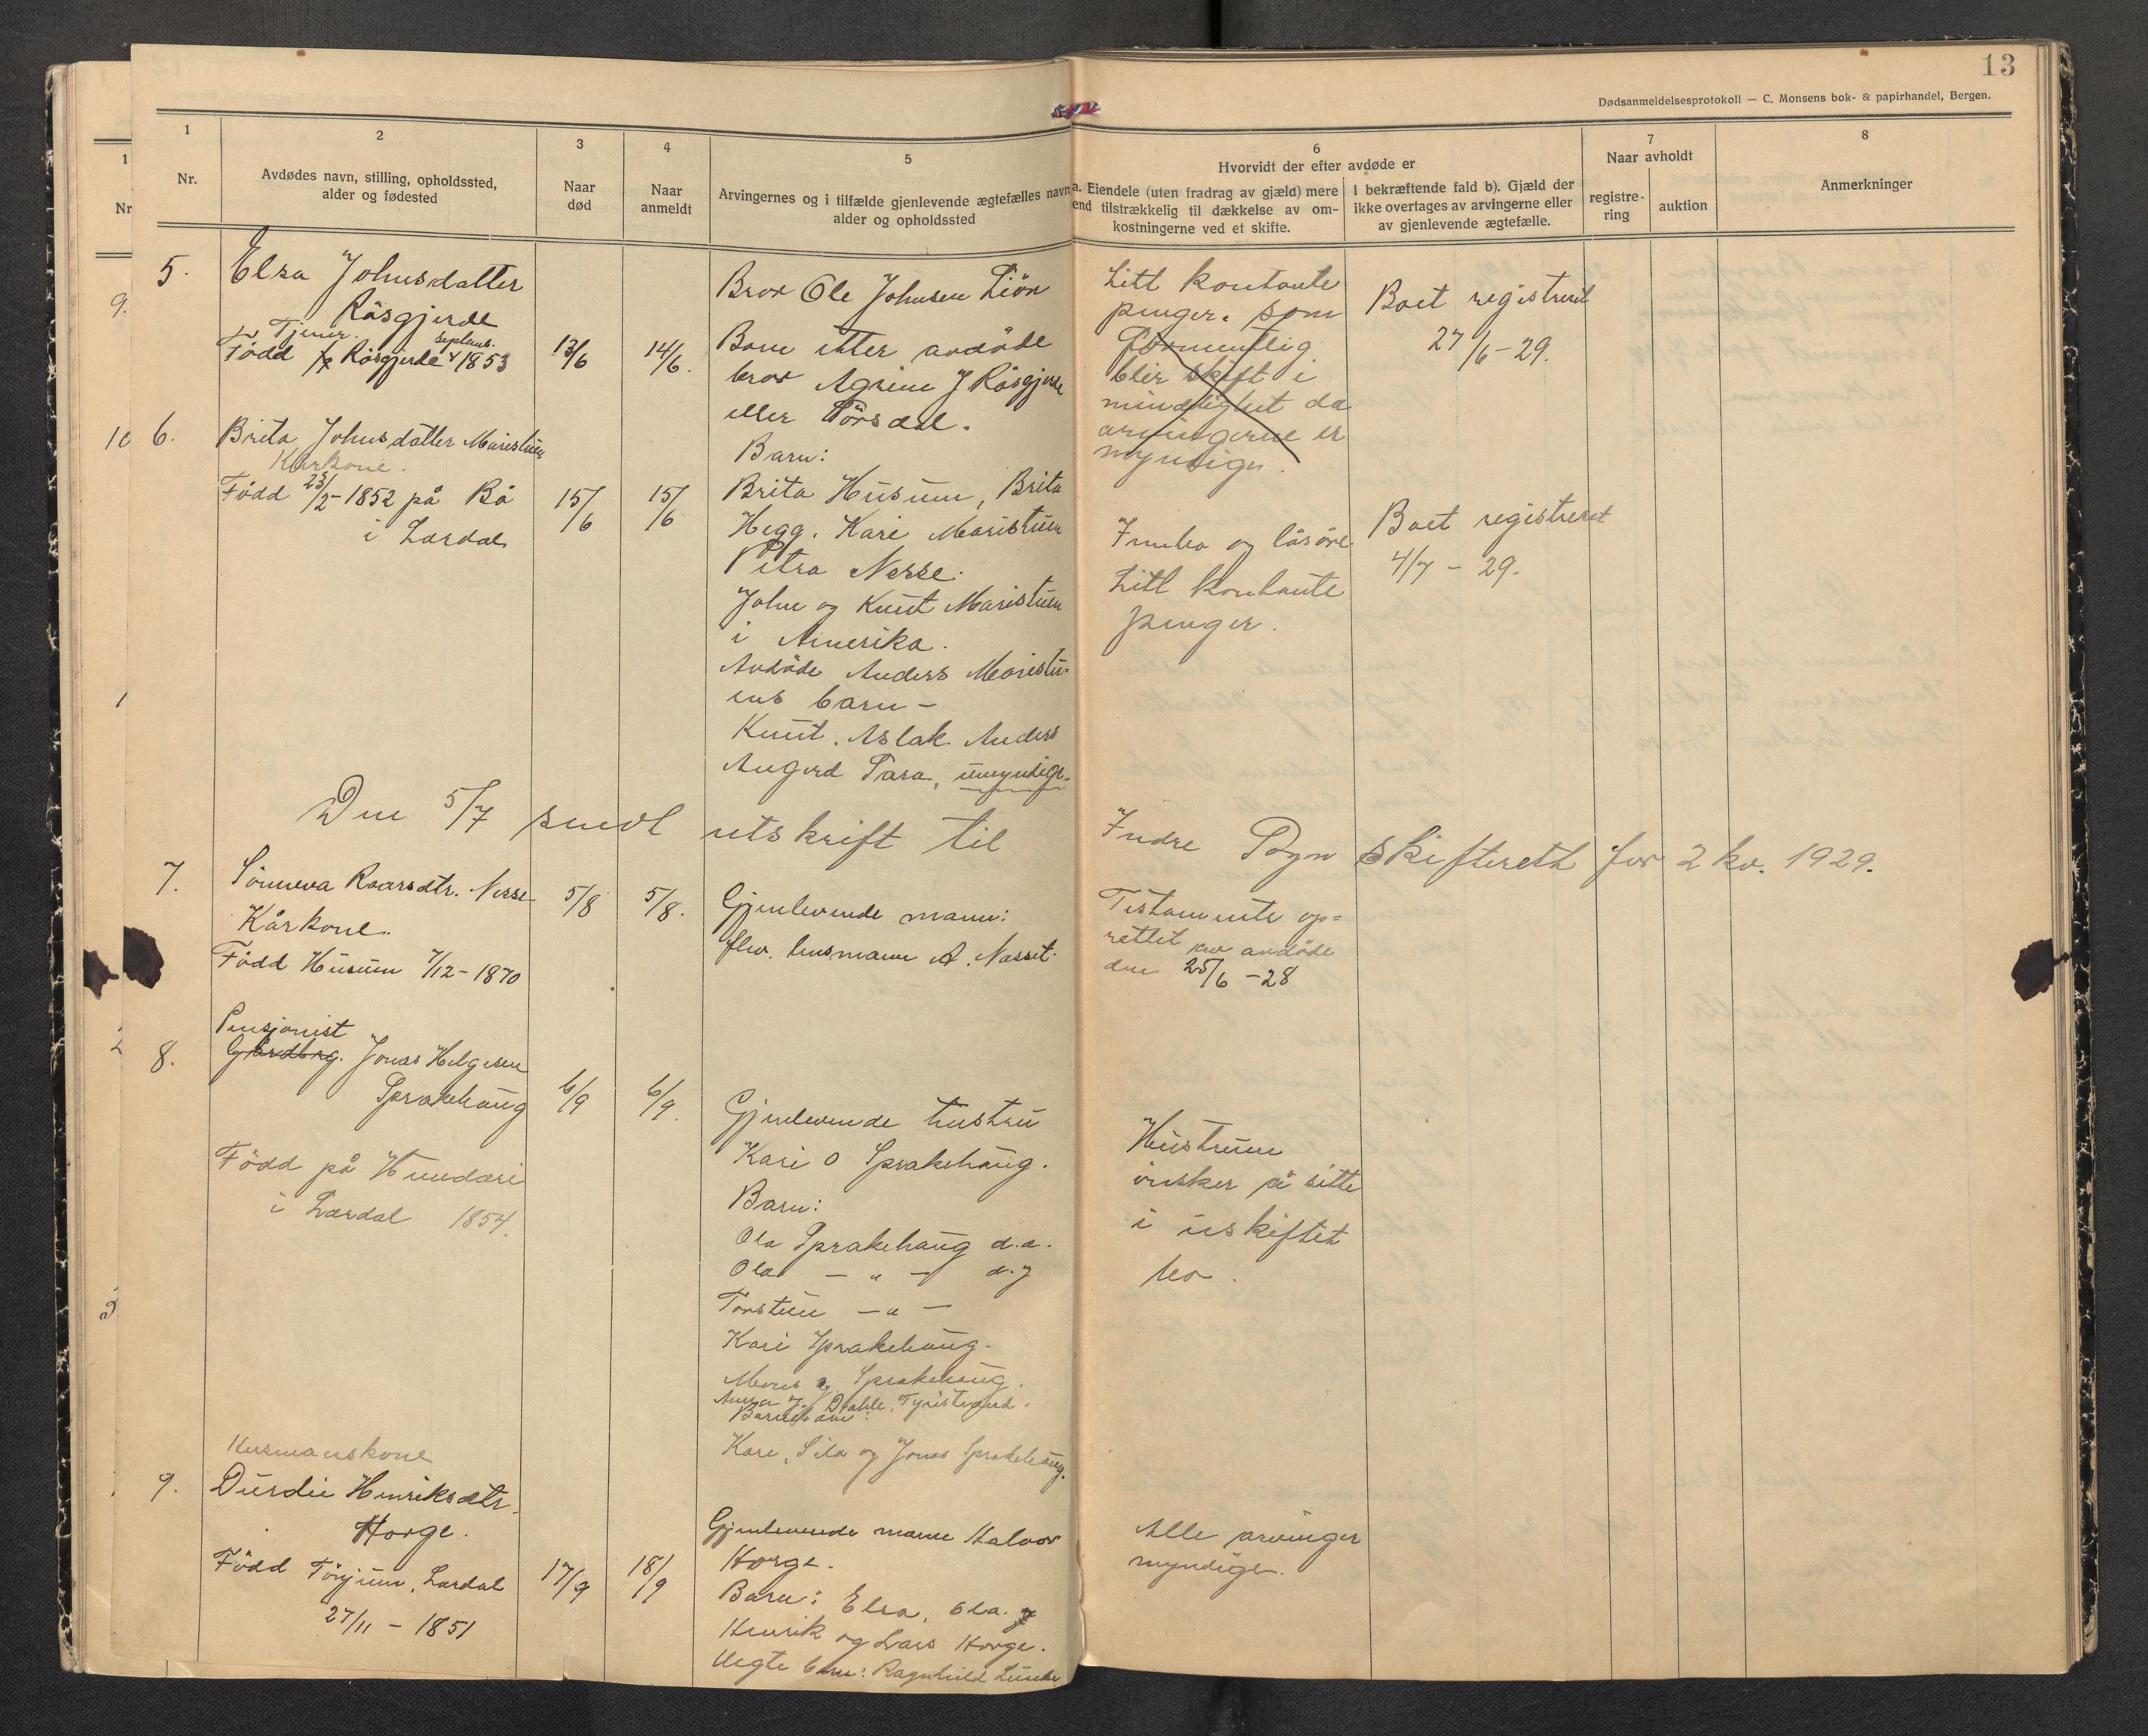 13
Dødsanmeldelsesprotokoll — C. Monsens bok- & papirhandel, Bergen.
1
Nr.
2
Avdødes navn, stilling, opholdssted,
alder og fødested
3
Naar
død
4
Naar
anmeldt
5
Arvingernes og i tilfælde gjenlevende ægtefælles navn
alder og opholdssted
6
Hvorvidt der efter avdøde er
a. Eiendele (uten fradrag av gjæld) mere
end tilstrækkelig til dækkelse av om-
kostningerne ved et skifte.
I bekræftende fald b). Gjæld der
ikke overtages av arvingerne eller
av gjenlevende ægtefælle.
7
Naar avholdt
registre-
ring
auktion
8
Anmerkninger
5.
Elsa Johnsdatter
Råsgjerde
Tjener.
Septemb.
Född Råsgjerde 1853
13/6
14/6.
Bror Ole Johnsen Liön
Barn etter avdöde
bror Agrim J Råsgjerde
eller
Litt kontante
penger. som
formentlig
blir skift i
mindelighet da
arvingerne er
myndige.
Boet registreret
27/6-29.
6.
Brita Johnsdatter Maristuen
Kårkone.
Född 23/2-1852 på Bö
i Lærdal
15/6
15/6
Barn:
Brita Husum, Brita
Hegg. Kari Maristuen
Petra Nesse.
John og Knut Maristuen
i Amerika.
Avdöde Anders Maristu=
ens barn -
Knut. Aslak. Anders
Angerd Sara, umyndige.
Innbo og lösöre.
Litt kontante
penger.
Boet registreret
4/7 - 29.
Den 5/7 sendt utskrift til Indre Sogn skifterett for 2 kv. 1929.
7.
Sönneva Roarsdtr. Nesse
Kårkone.
Född Husum 7/12-1870
5/8
5/8.
Gjenlevende mann:
fhv. lensmann A. Nesset.
Testamente op=
rettet av avdöde
den 25/6 -28
8.
Pensjonist
Gårdbrg. Jonas Helgesen
Sprakehaug
Född på Hundari
i Lærdal 1854.
6/9
6/9.
Gjenlevende hustru
Kari O Sprakehaug.
Barn:
Ola Sprakehaug d.e.
Ola - " - d.y
Torstein - " -
Kari Sprakehaug.
Sprakehaug.
Anna J. Dahle, Tyristrand.
Barnebarn:
Kari, Sila og Jonas Sprakehaug.
Hustruen
önsker å sitte
i uskiftet
bo.
9.
Husmanskone
Durdei Henriksdtr.
Horge.
Född Tönjum, Lærdal
27/11 - 1851
17/9
18/9
Gjenlevende mann Halvor
Horge.
Barn: Elsa, Ola.
Henrik og Lars Horge.
Uegte barn: Ragnhild
Alle arvinger
myndige.